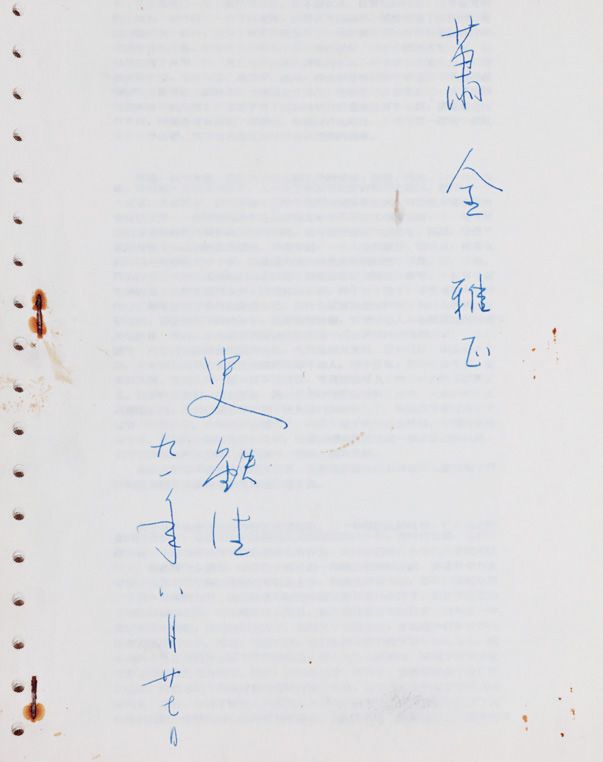 蕭全雅正
史鉄生
九一年八月廿七日